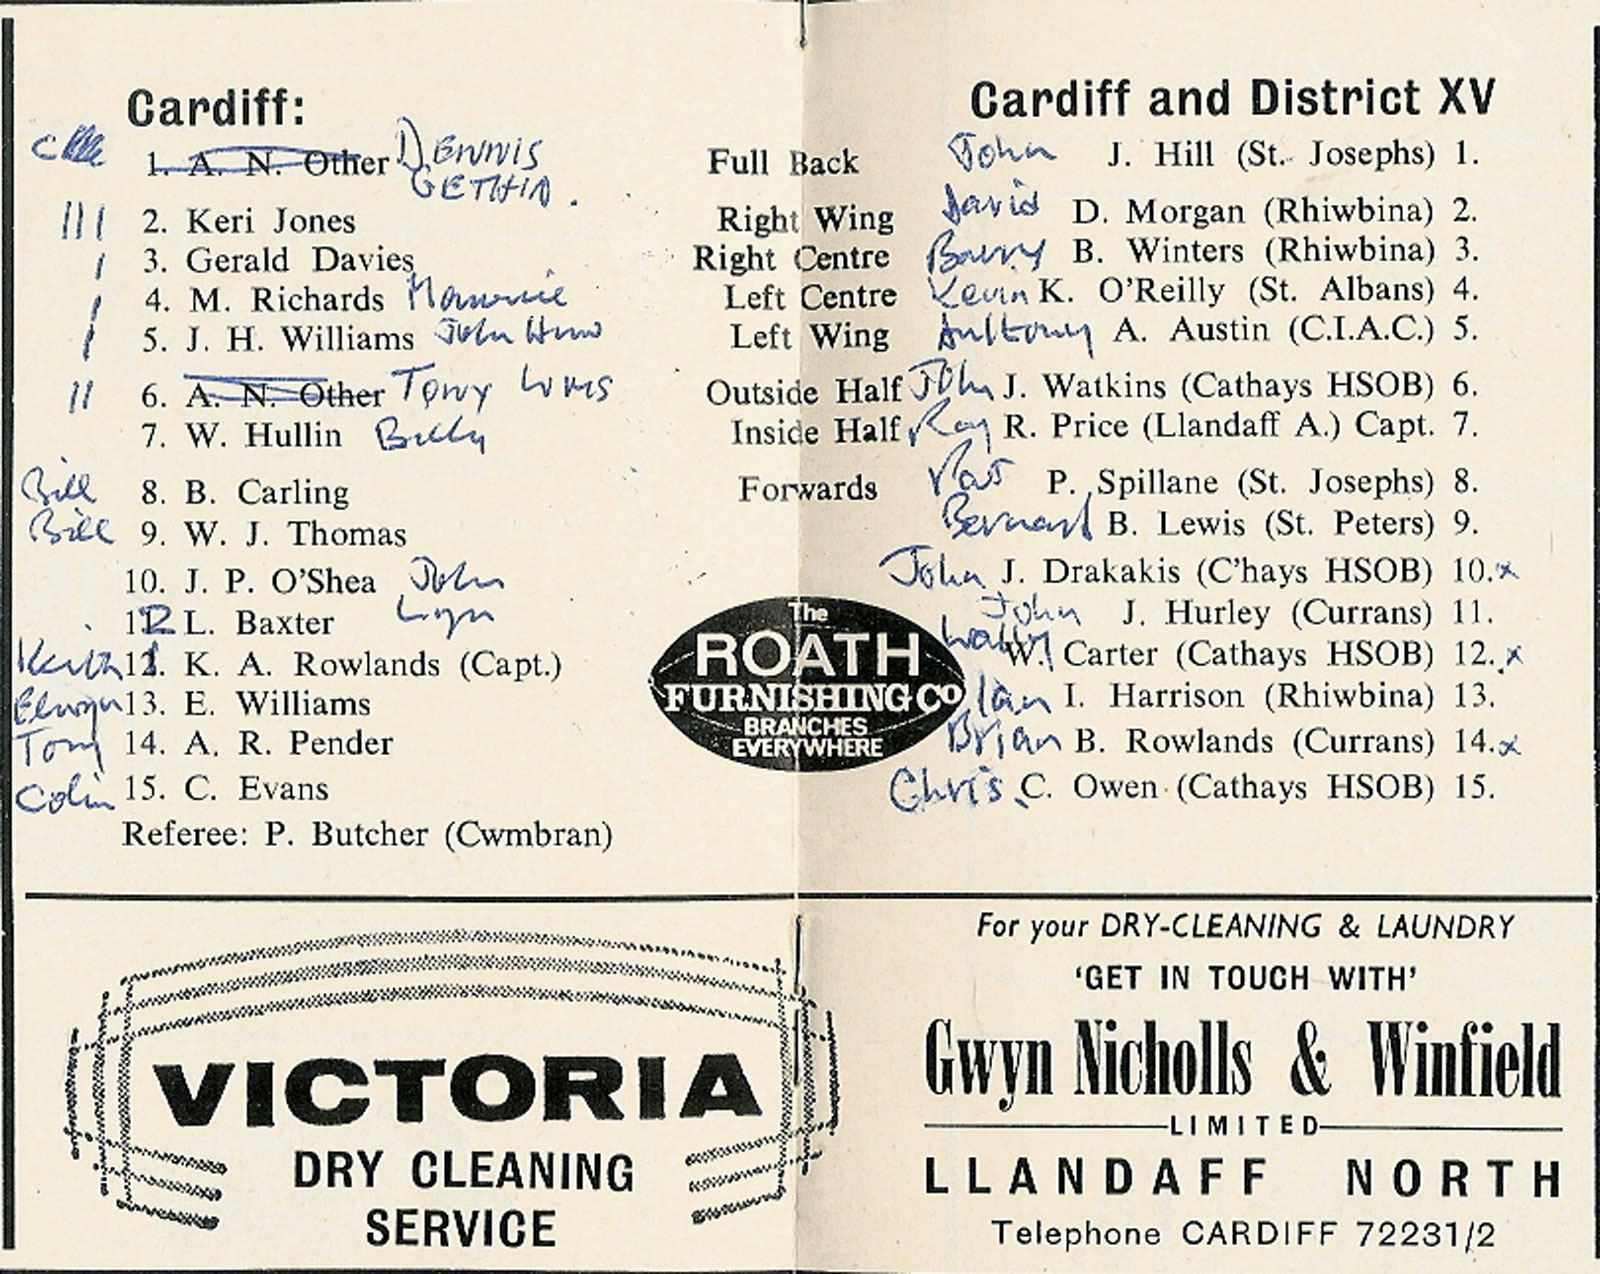 Cardiff:
1. A. N. Other DENNIS GETHIN.
2. Keri Jones
3. Gerald Davies
4. M. Richards Maurice
5. J. H. Williams John Huw
6. A. N. Other Tony
7. W. Hullin Billy
Bill 8. B. Carling
Bill 9. W. J. Thomas
10. J. P. O'Shea John
L. Baxter Lyn
Keith K. A. Rowlands (Capt.)
Elwyn 13. E. Williams
Tony 14. A. R. Pender
Colin 15. C. Evans
Referee: P. Butcher (Cwmbran)
Full Back
Right Wing
Right Centre
Left Centre
Left Wing
Outside Half
Inside Half
Forwards
The
ROATH
FURNISHING Co
BRANCHES
EVERYWHERE
Cardiff and District XV
John J. Hill (St. Josephs) 1.
David D. Morgan (Rhiwbina) 2.
Barry B. Winters (Rhiwbina) 3.
Kevin K. O'Reilly (St. Albans) 4.
Anthony A. Austin (C.I.A.C.) 5.
John J. Watkins (Cathays HSOB) 6.
Ray R. Price (Llandaff A.) Capt. 7.
Pat P. Spillane (St. Josephs) 8.
Bernard B. Lewis (St. Peters) 9.
John J. Drakakis (C'hays HSOB) 10.x
John J. Hurley (Currans) 11.
Wally W. Carter (Cathays HSOB) 12.x
Ian I. Harrison (Rhiwbina) 13.
Brian B. Rowlands (Currans) 14.x
Chris C. Owen (Cathays HSOB) 15.
VICTORIA
DRY CLEANING
SERVICE
For your DRY-CLEANING & LAUNDRY
'GET IN TOUCH WITH'
Gwyn Nicholls & Winfield
LIMITED
LLANDAFF NORTH
Telephone CARDIFF 72231/2